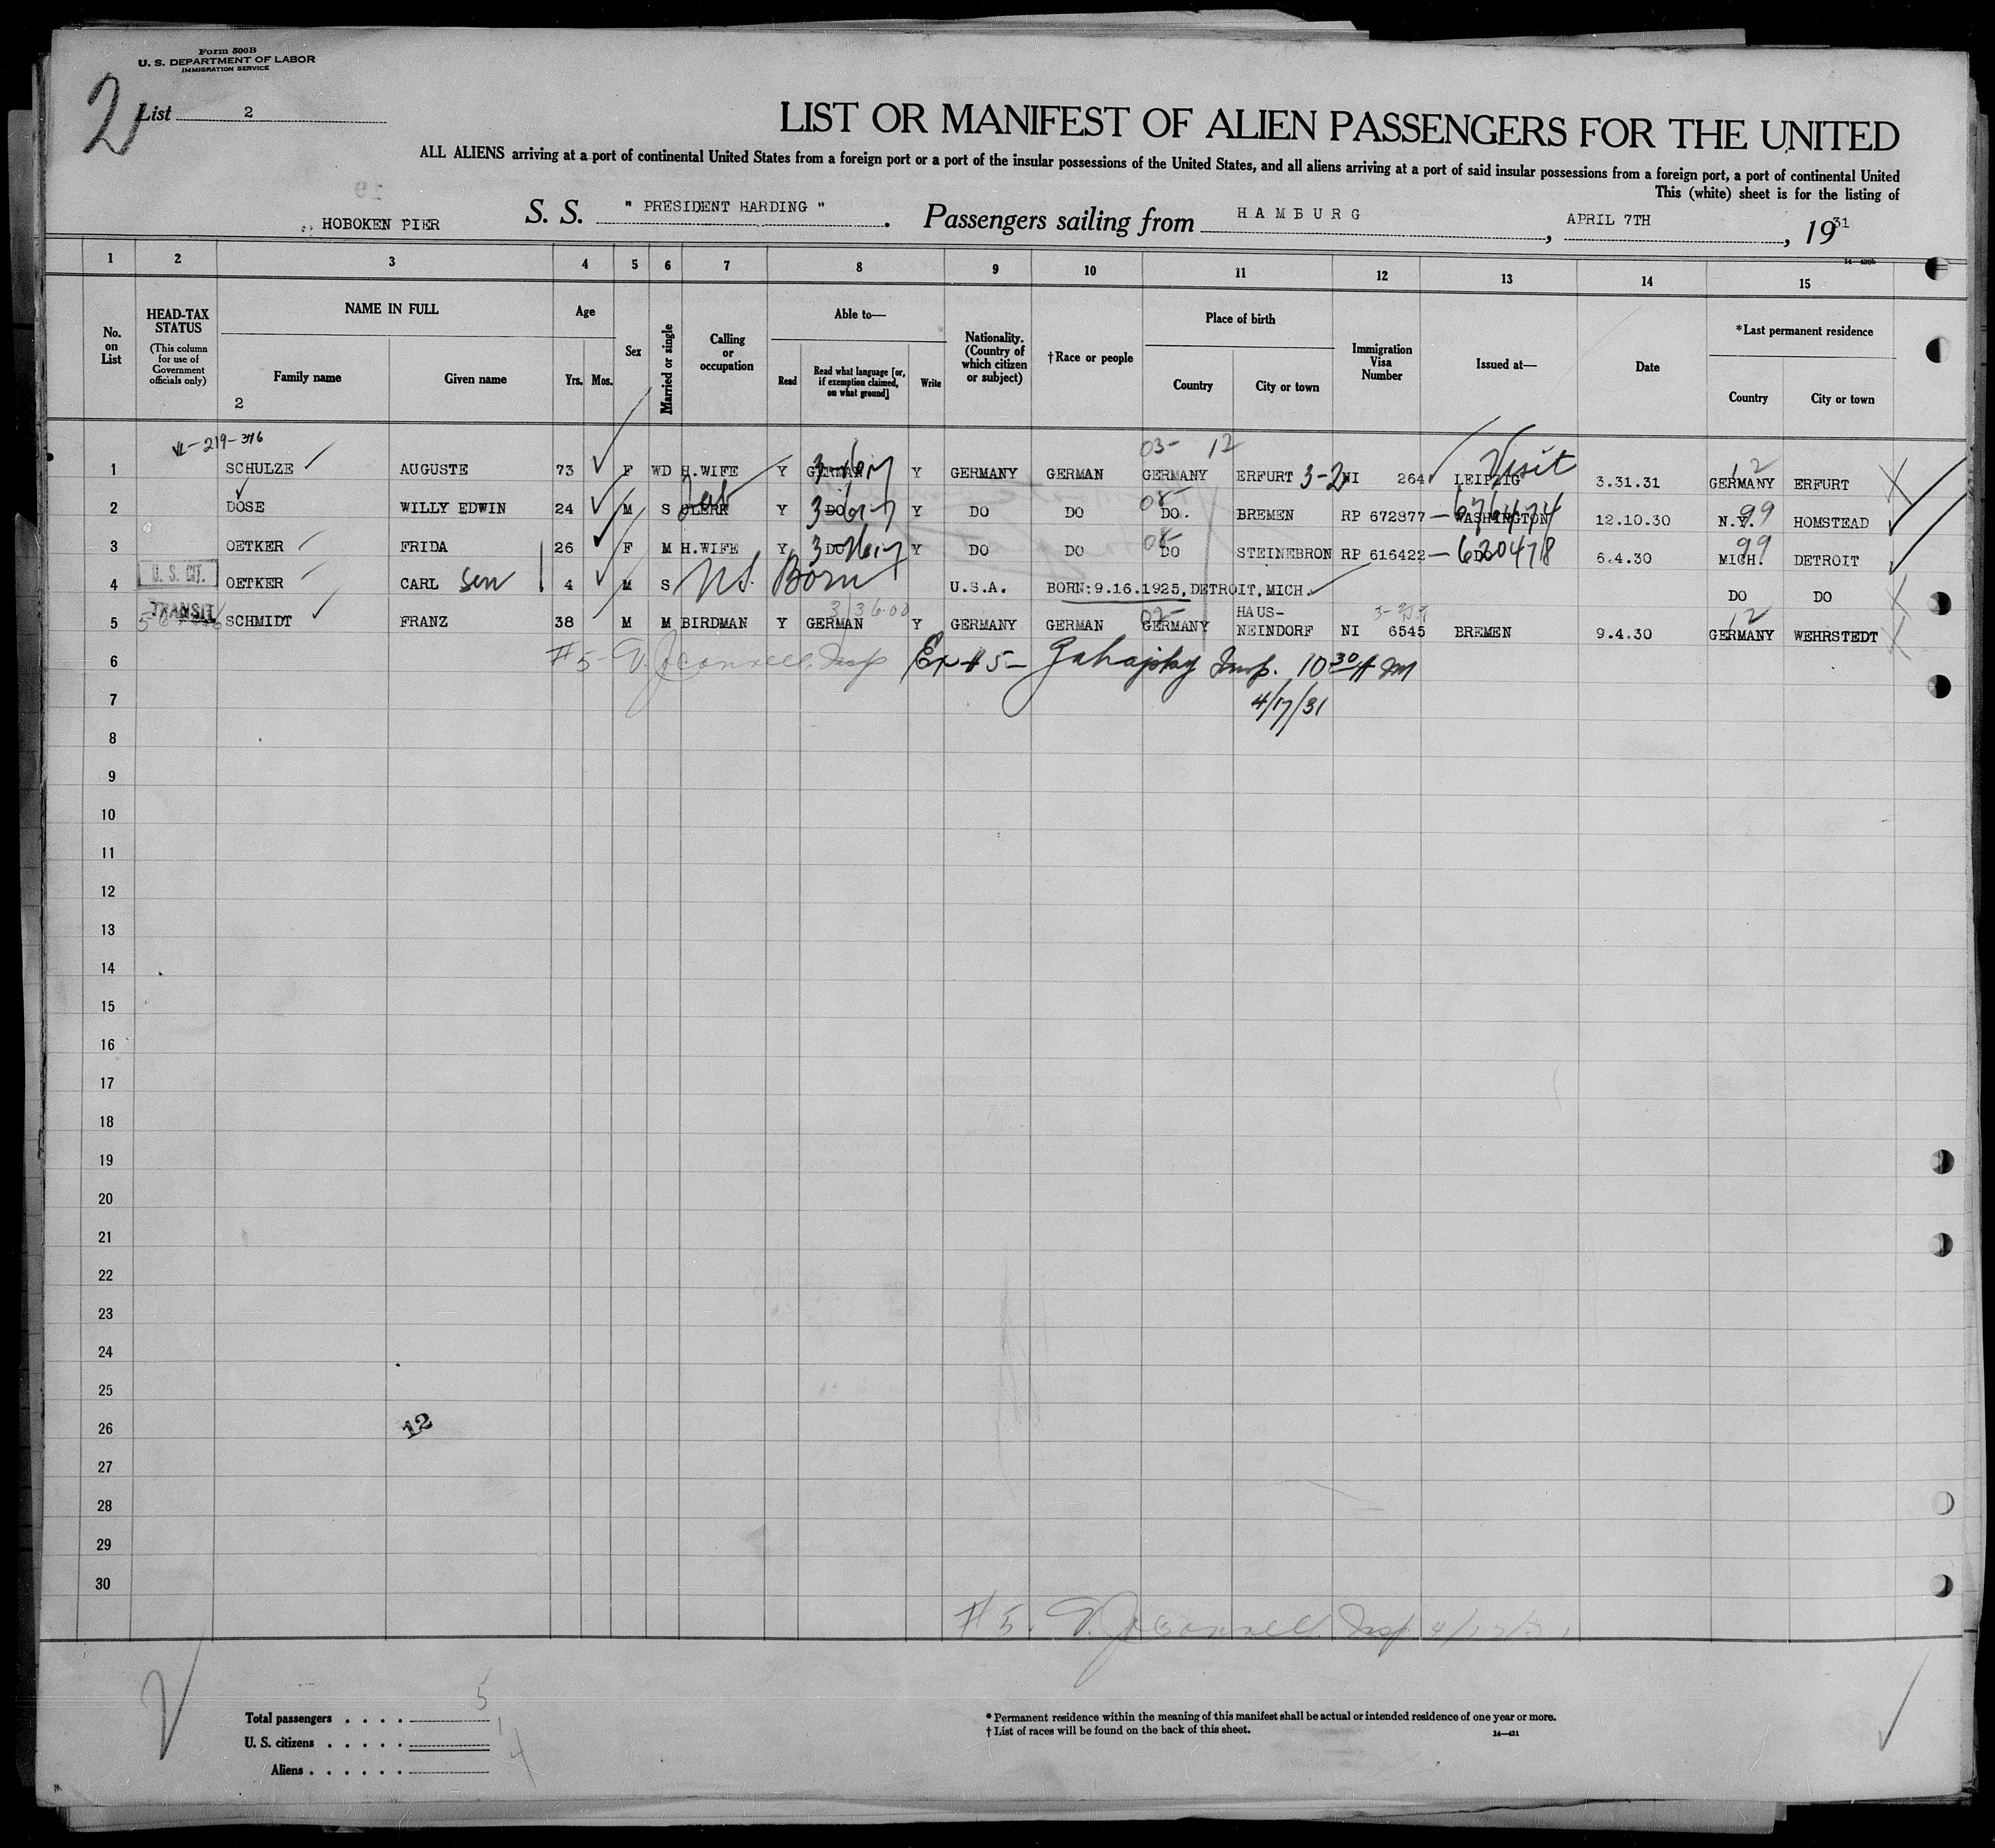 Form 500B
U. S. DEPARTMENT OF LABOR
IMMIGRATION SERVICE
2
List 2
LIST OR MANIFEST OF ALIEN PASSENGERS FOR THE UNITED
ALL ALIENS arriving at a port of continental United States from a foreign port or a port of the insular possessions of the United States, and all aliens arriving at a port of said insular possessions from a foreign port, a port of continental United
This (white) sheet is for the listing of
HOBOKEN PIER S. S. " PRESIDENT HARDING ". Passengers sailing from HAMBURG, APRIL 7TH, 1931
1 2 3 4 5 6 7 8 9 10 11 12 13 14 15
No. on List
HEAD-TAX STATUS (This column for use of Government officials only)
NAME IN FULL
Family name
Given name
2
Age
Yrs. Mos.
Sex
Married or single
Calling or occupation
Able to—
Read
Read what language [or, if exemption claimed, on what ground]
Write
Nationality. (Country of which citizen or subject)
†Race or people
Place of birth
Country
City or town
Immigration Visa Number
Issued at—
Date
*Last permanent residence
Country
City or town
03- 12
1 SCHULZE AUGUSTE 73 F WD H.WIFE Y GERMAN Y GERMANY GERMAN GERMANY ERFURT 3-2 NI 264 LEIPZIG Visit 3.31.31 GERMANY ERFURT
2 DOSE WILLY EDWIN 24 M S CLERK Y DO Y DO DO DO. BREMEN RP 672877 — WASHINGTON 676474 12.10.30 N.Y. 99 HOMSTEAD
3 OETKER FRIDA 26 F M H.WIFE Y DO Y DO DO DO STEINEBRON RP 616422 — DO 620478 6.4.30 MICH. 99 DETROIT
U. S. CIT.
4 OETKER CARL son 4 M S U.S. Born U.S.A. BORN:9.16.1925, DETROIT, MICH. DO DO
TRANSIT
5 SCHMIDT FRANZ 38 M M BIRDMAN Y GERMAN Y GERMANY GERMAN GERMANY HAUS-NEINDORF NI 6545 BREMEN 9.4.30 GERMANY WEHRSTEDT
6 #5 Insp Ex #5- Insp. 10 30 AM
7 4/17/31
8
9
10
11
12
13
14
15
16
17
18
19
20
21
22
23
24
25
26 12
27
28
29
30
#5. Insp. 4/17/31
Total passengers . . . . 5
U. S. citizens . . . . . 1
Aliens . . . . . . 4
* Permanent residence within the meaning of this manifest shall be actual or intended residence of one year or more.
† List of races will be found on the back of this sheet.
14—431